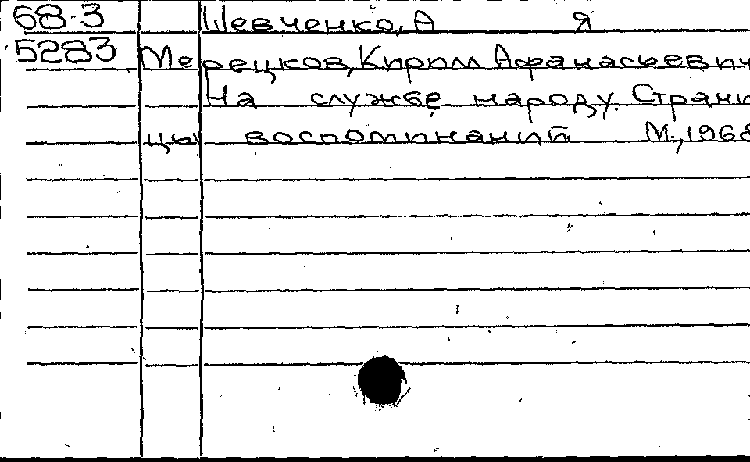 68-3 Шевченко, А Я
5283 Мерецков, Кирилл Афанасьевич
На службе народу. Страни
цы воспоминаний М., 1968